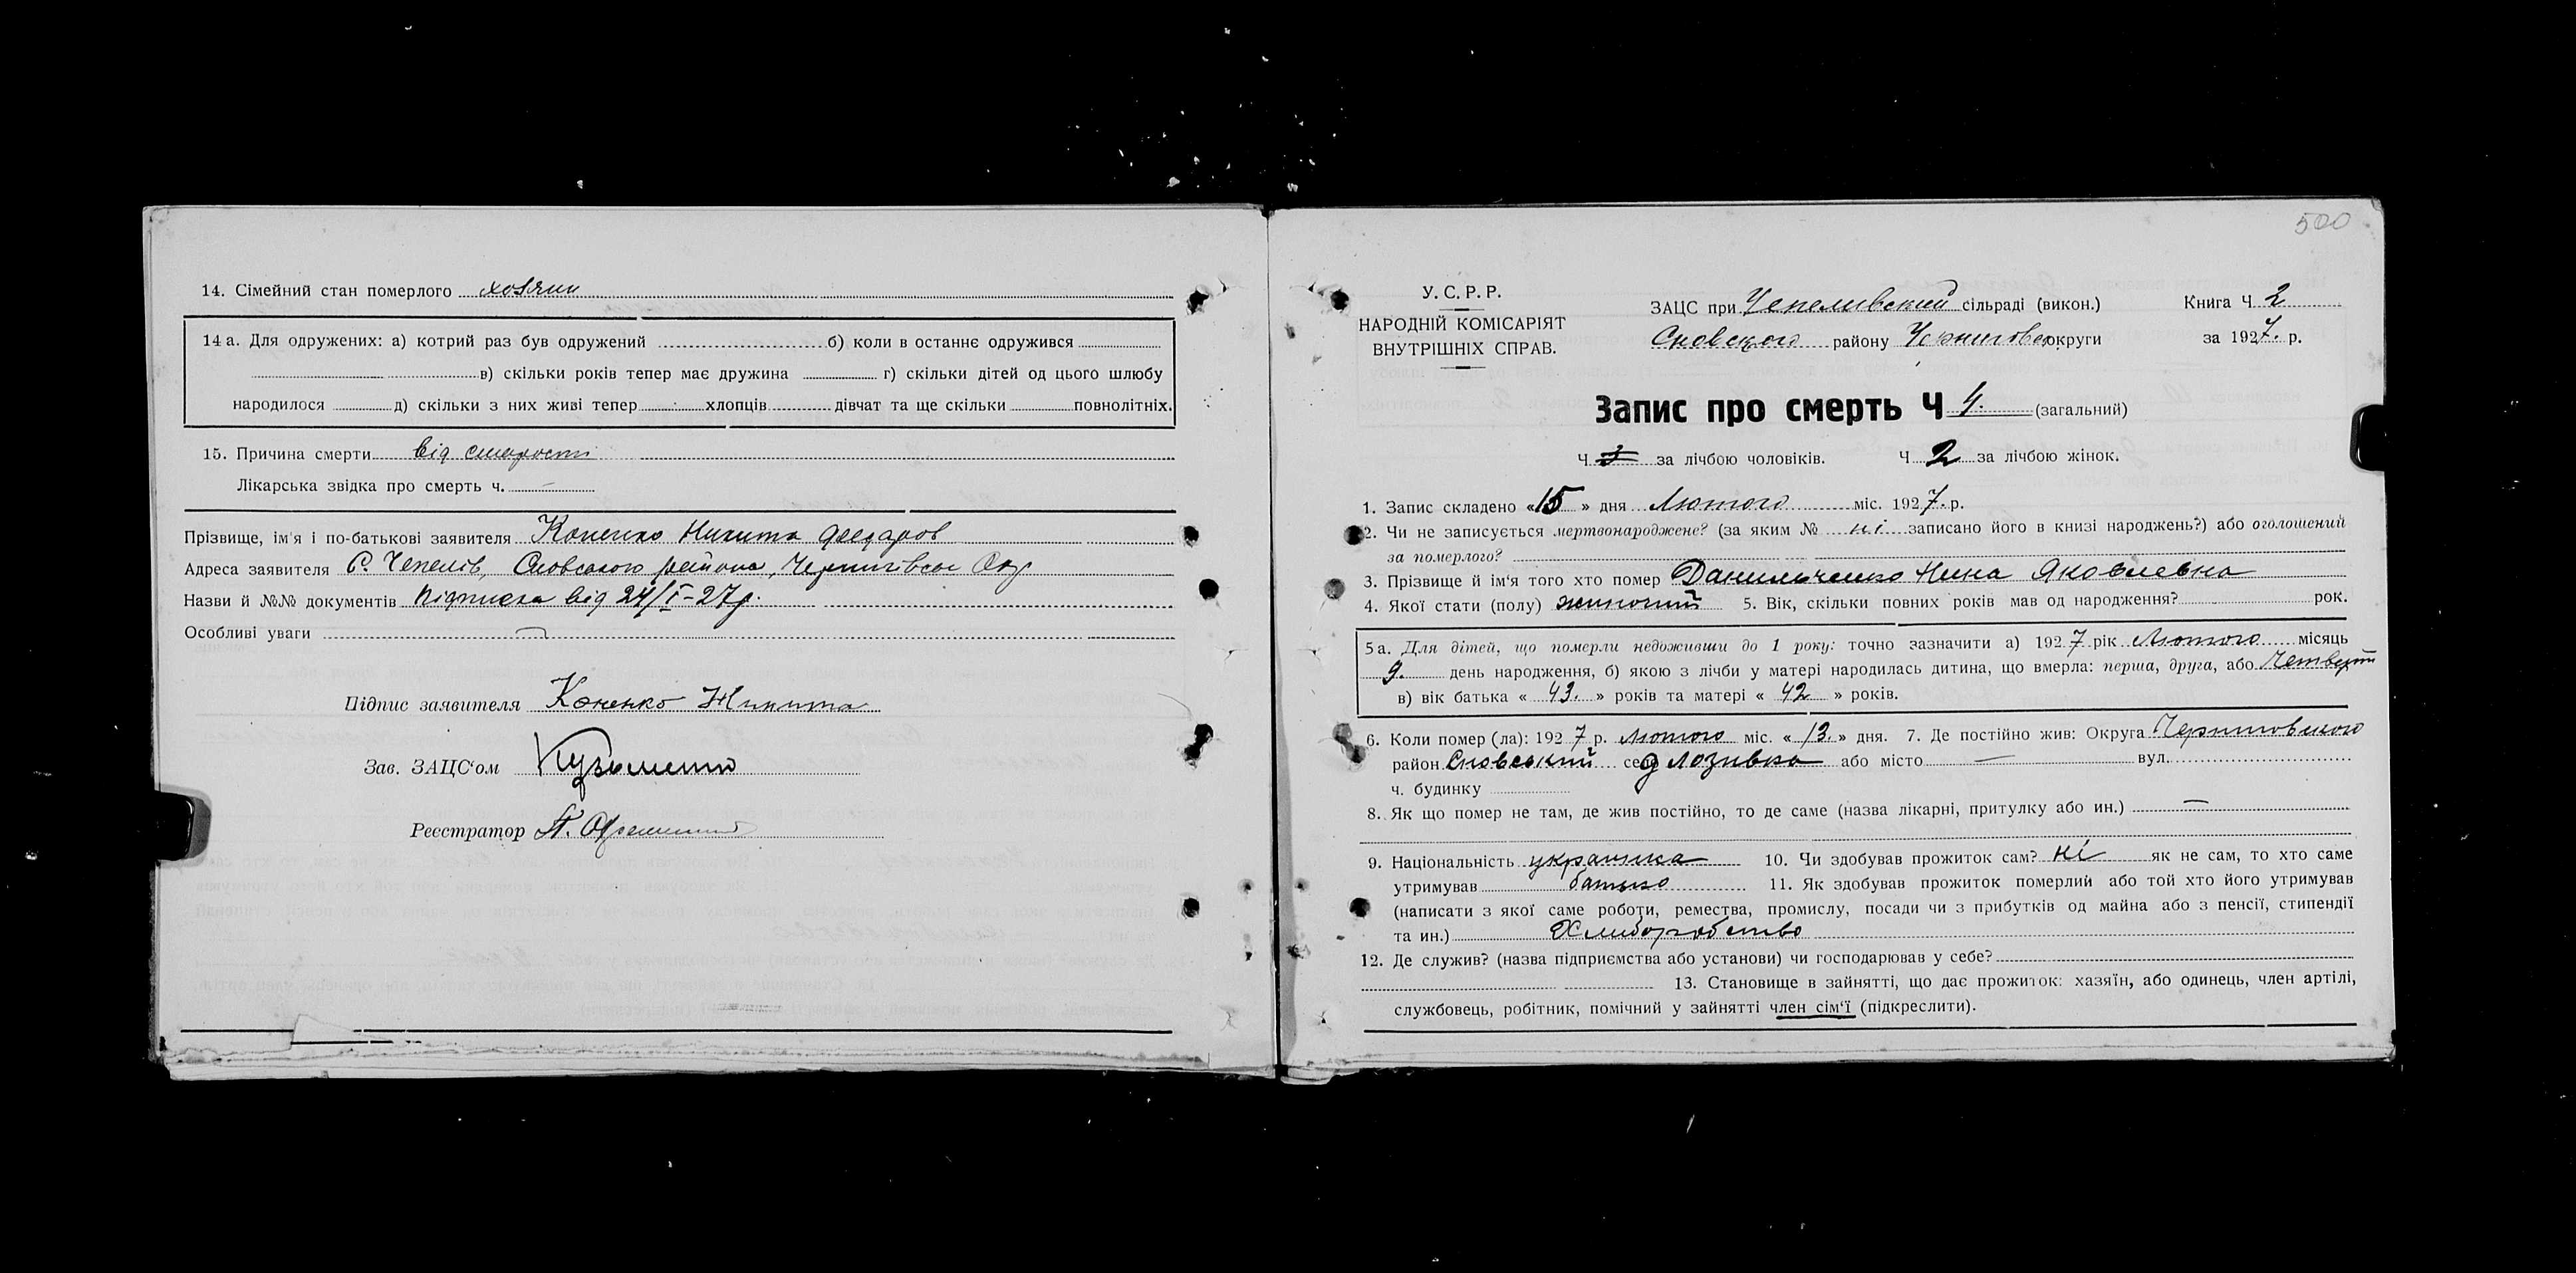 14. Сімейний стан померлого хозяин
14 а. Для одружених: а) котрий раз був одружений б) коли в останнє одружився
в) скільки років тепер має дружина г) скільки дітей од цього шлюбу
народилося д) скільки з них живі тепер хлопців дівчат та ще скільки повнолітніх.
15. Причина смерти від старости
Лікарська звідка про смерть ч. —
Прізвище, ім'я і по-батькові заявителя Коненко Никита Федаров
Адреса заявителя С. Чепелів, Сновського района, Чернигівськ Окр
Назви й №№ документів Підписка від 24/I-27р.
Особливі уваги
Підпис заявителя Коненко Никита
Зав. ЗАЦС'ом Кузьменко
Реєстратор П.
500
У. С. Р. Р.
НАРОДНІЙ КОМІСАРІЯТ
ВНУТРІШНІХ СПРАВ.
ЗАЦС при Чепеливский сільраді (викон.)
Сновского району Чернигове округи
Книга Ч 2
за 1927. р.
Запис про смерть Ч 4. (загальний)
Ч 3 за лічбою чоловіків. Ч 2 за лічбою жінок.
1. Запис складено «15» дня Лютого міс. 1927. р.
2. Чи не записується мертвонароджене? (за яким № ні записано його в книзі народжень?) або оголошений
за померлого?
3. Прізвище й ім'я того хто помер Данильченко Нина Яковлевна
4. Якої стати (полу) жиночий 5. Вік, скільки повних років мав од народження? рок.
5 а. Для дітей, що померли недоживши до 1 року: точно зазначити а) 1927 рік Лютого місяць
9. день народження, б) якою з лічби у матері народилась дитина, що вмерла: перша, друга, або Четверти
в) вік батька « 43. » років та матері « 42 » років.
6. Коли помер (ла): 1927 р. лютого міс. « 13. » дня. 7. Де постійно жив: Округа Черниговского
район Сновський село д Лозивка або місто — вул.
ч. будинку
8. Як що помер не там, де жив постійно, то де саме (назва лікарні, притулку або ин.) —
9. Національність украинка 10. Чи здобував прожиток сам? ні як не сам, то хто саме
утримував батько 11. Як здобував прожиток померлий або той хто його утримував
(написати з якої саме роботи, ремества, промислу, посади чи з прибутків од майна або з пенсії, стипендії
та ин.) Хлиборобство
12. Де служив? (назва підприємства або установи) чи господарював у себе?
13. Становище в зайнятті, що дає прожиток: хазяїн, або одинець, член артілі,
службовець, робітник, помічний у зайнятті член сім'ї (підкреслити).